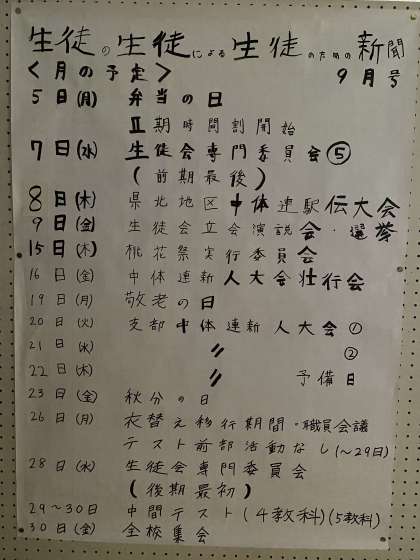 生徒の生徒による生徒のための新聞
<月の予定> 9月号
5日(月) 弁当の日
Ⅱ期時間割開始
7日(水) 生徒会専門委員会⑤
(前期最後)
8日(木) 県北地区中体連駅伝大会
9日(金) 生徒会立会演説会・選挙
15日(木) 桃花祭実行委員会
16日(金) 中体連新人大会壮行会
19日(月) 敬老の日
20日(火) 支部中体連新人大会①
21日(水) 〃 ②
22日(木) 〃 予備日
23日(金) 秋分の日
26日(月) 衣替え移行期間・職員会議
テスト前部活動なし(~29日)
28日(水) 生徒会専門委員会
(後期最初)
29~30日 中間テスト(4教科)(5教科)
30日(金) 全校集会